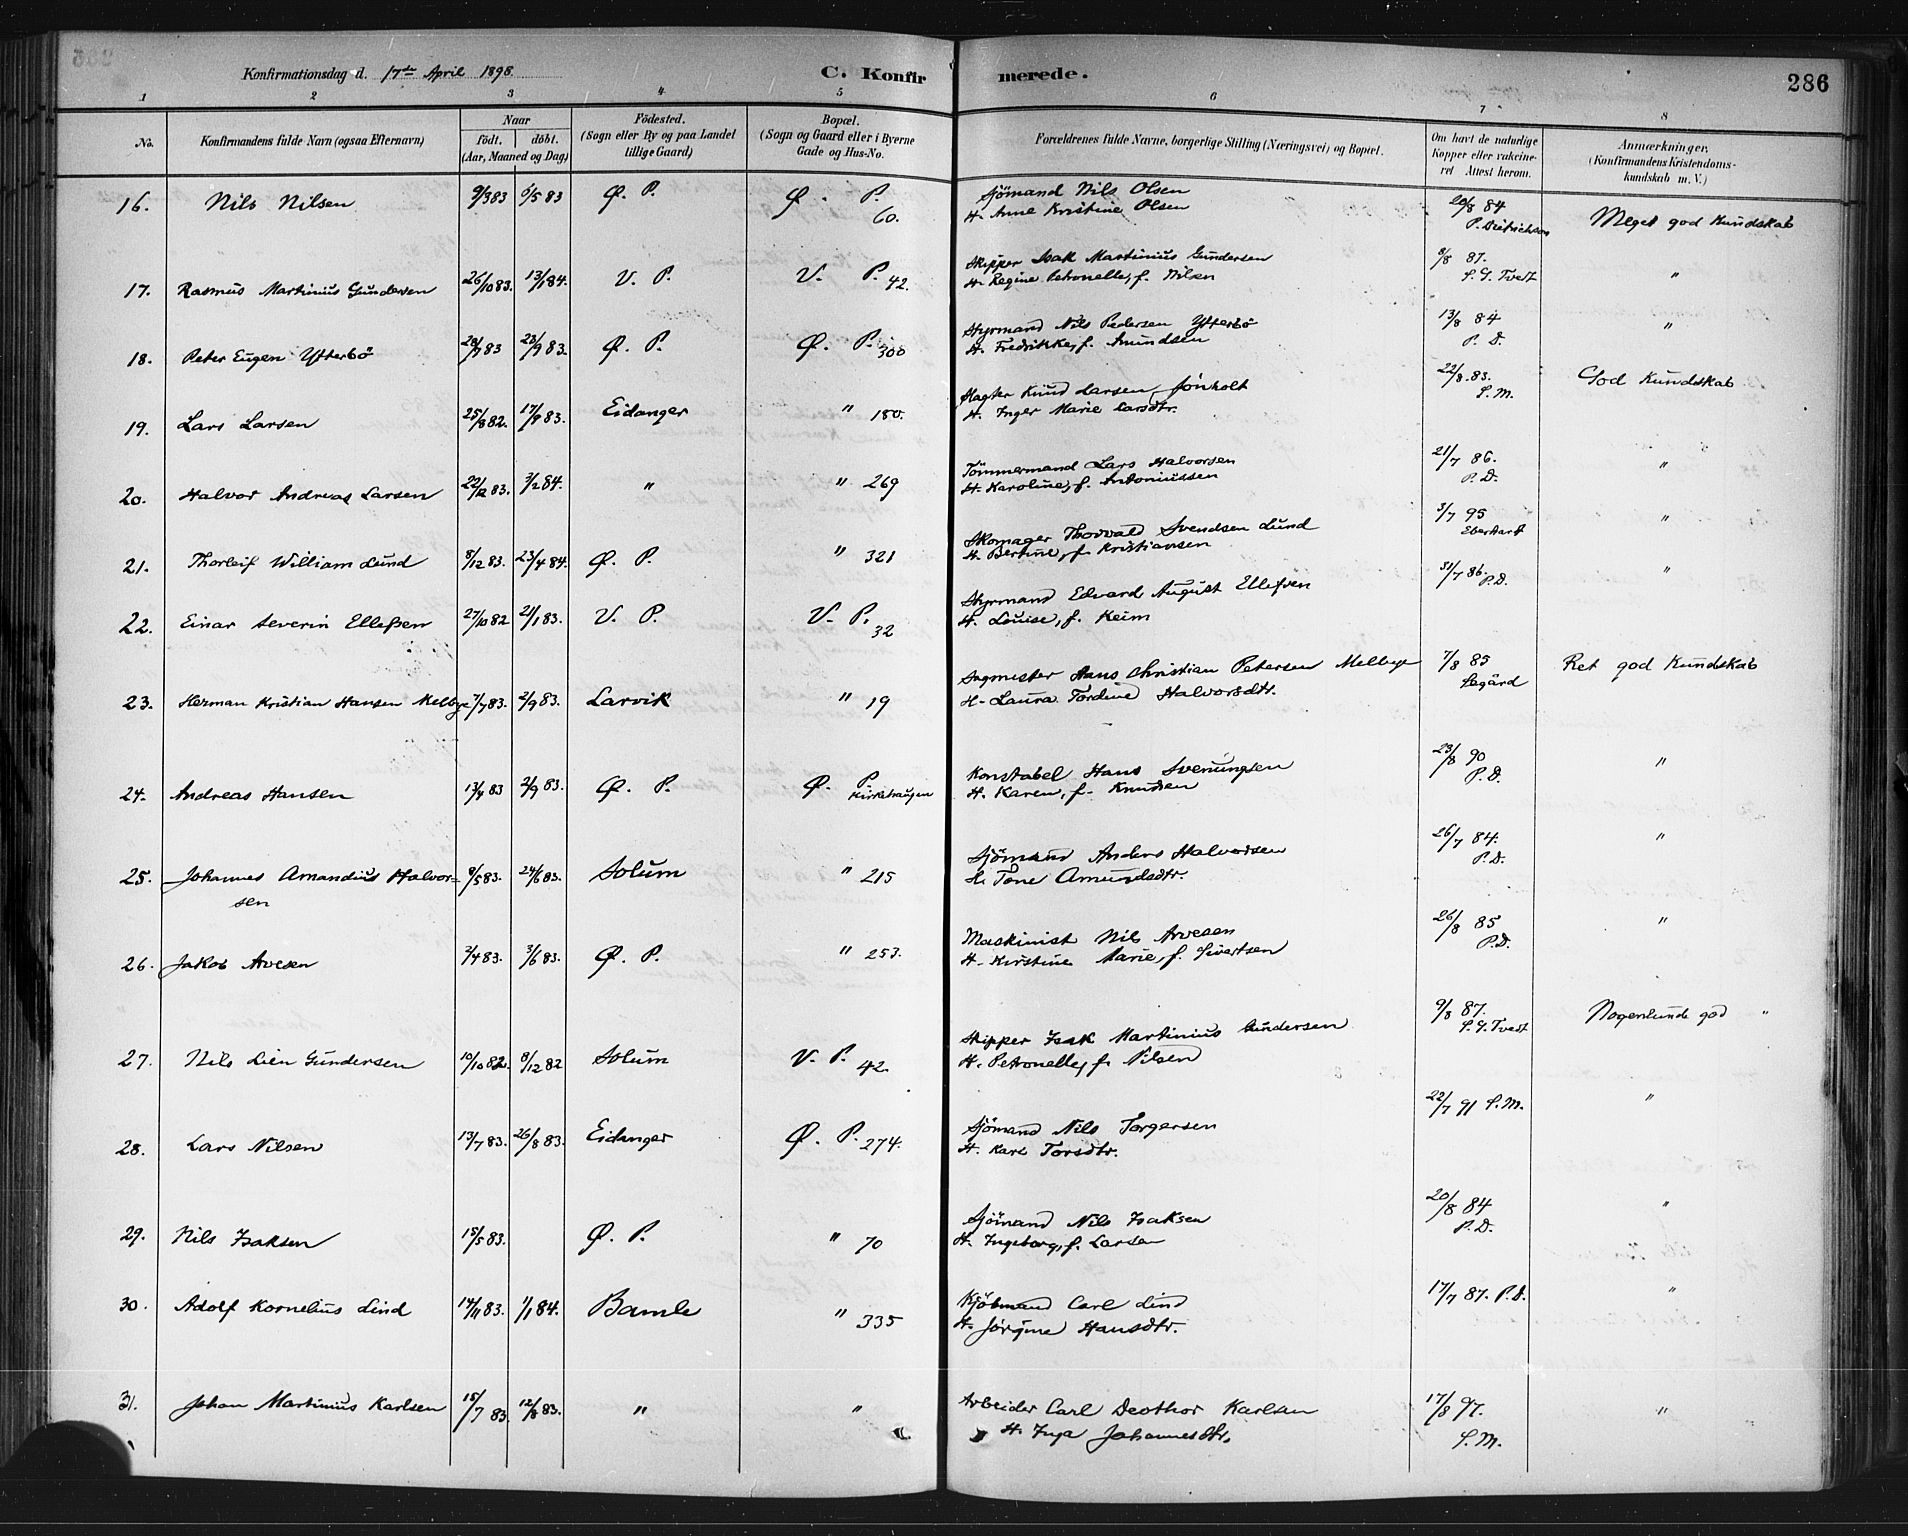 Konfirmationsdag d. 17de April 1898. C. Konfirmerede. 286
1 2 3 4 5 6 7 8
No. Konfirmandens fulde Navn (ogsaa Efternavn) Naar födt. döbt. (Aar, Maaned og Dag) Födested. (Sogn eller By og paa Landet tillige Gaard) Bopæl. (Sogn og Gaard eller i Byerne Gade og Hus-No. Forældrenes fulde Navne, borgerlige Stilling (Næringsvei) og Bopæl. Om havt de naturlige Kopper eller vakcineret Attest herom. Anmærkninger. (Konfirmandens Kristendomskundskab m. V.)
16. Nils Nilsen 9/3 83 6/5 83 Ø. P. Ø. P. 60. Sjömand Nils Olsen
H. Anne Kristine Olsen 20/8 84 P. Dietrichson Meget god Kundskab
17. Rasmus Martinius Gundersen 26/10 83. 13/1 84. V. P. V. P. 42. Skipper Isak Martinius Gundersen
H. Regine Petronelle, f. Nilsen 8/8 87. S. G. Tvedt "
18. Peter Eugen Ytterbö 20/7 83 23/9 83. Ø. P. Ø. P. 300 Styrmand Nils Pedersen Ytterbö
H. Fredrikke, f. Amundsen 13/8 84 P. D. "
19. Lars Larsen 25/8 82. 17/8 83. Eidanger " 180. Slagter Knud Larsen Jönholt
H. Inger Marie Larsdtr. 22/8. 83. S. M. God Kundskab
20. Halvor Andreas Larsen 22/12 83. 3/2 84. " " 269 Tömmermand Lars Halvorsen
H. Karoline, f. Antoniussen 21/7 86. P. D. "
21. Thorleif William Lund 8/12 83. 23/4 84. Ø. P. " 321 Skomager Thorvald Svendsen Lund
H. Bertine, f. Kristiansen 3/7 95 Eberhardt "
22. Einar Severin Ellefsen 27/10 82 21/1 83. V. P. V. P. 32 Styrmand Edvard August Ellefsen
H. Louise, f. Keim 31/7 86. P. D. "
23. Herman Kristian Hansen Melbye 7/7 83. 2/9 83. Larvik " 19 Sagmester Hans Christian Petersen Melbye
H. Laura Tordine Halvorsdtr. 7/8 85 Legård Ret god Kundskab
24. Andreas Hansen 13/7 83 2/9 83. Ø. P. Ø. P. Kirkehaugen Konstabel Hans Svenungsen
H. Karen, f. Knudsen 23/8 90 P. D. "
25. Johannes Amandius Halvor=
sen 8/5 83. 24/6 83. Solum " 215 Sjömand Anders Halvorsen
H. Tone Amundsdtr. 26/7 84. P. D. "
26. Jakob Arvesen 2/4 83. 3/6 83. Ø. P. " 253. Maskinist Nils Arvesen
H. Kirstine Marie, f. Sivertsen 26/8 85 P. D. "
27. Nils Lien Gundersen 10/10 82. 8/12 82 Solum V. P. 42. Skipper Isak Martinius Gundersen
H. Petronelle, f. Nilsen 9/8 87. S. G. Tvedt Nogenlunde god "
28. Lars Nilsen 13/7 83. 26/8 83. Eidanger Ø. P. 274. Sjömand Nils Torgersen
H. Kari Torsdtr. 22/7 91 S. M. "
29. Nils Isaksen 15/5 83. Ø. P. " 70 Sjömand Nils Isaksen
H. Ingeborg, f. Larsen 20/8 84 P. D. "
30. Adolf Kornelius Lind 14/11 83. 1/1 84. Bamle " 335 Kjöbmand Carl Lind
H. Jörgine Hansdtr. 17/7 87. P. D. "
31. Johan Martinius Karlsen 15/7 83 12/8 83. " " Arbeider Carl Deothor Karlsen
H. Inga Johannesdtr. 17/8 97. S. M. "